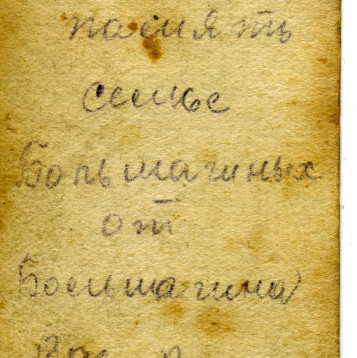 память
семье
Большагиных
от
Боельшагина